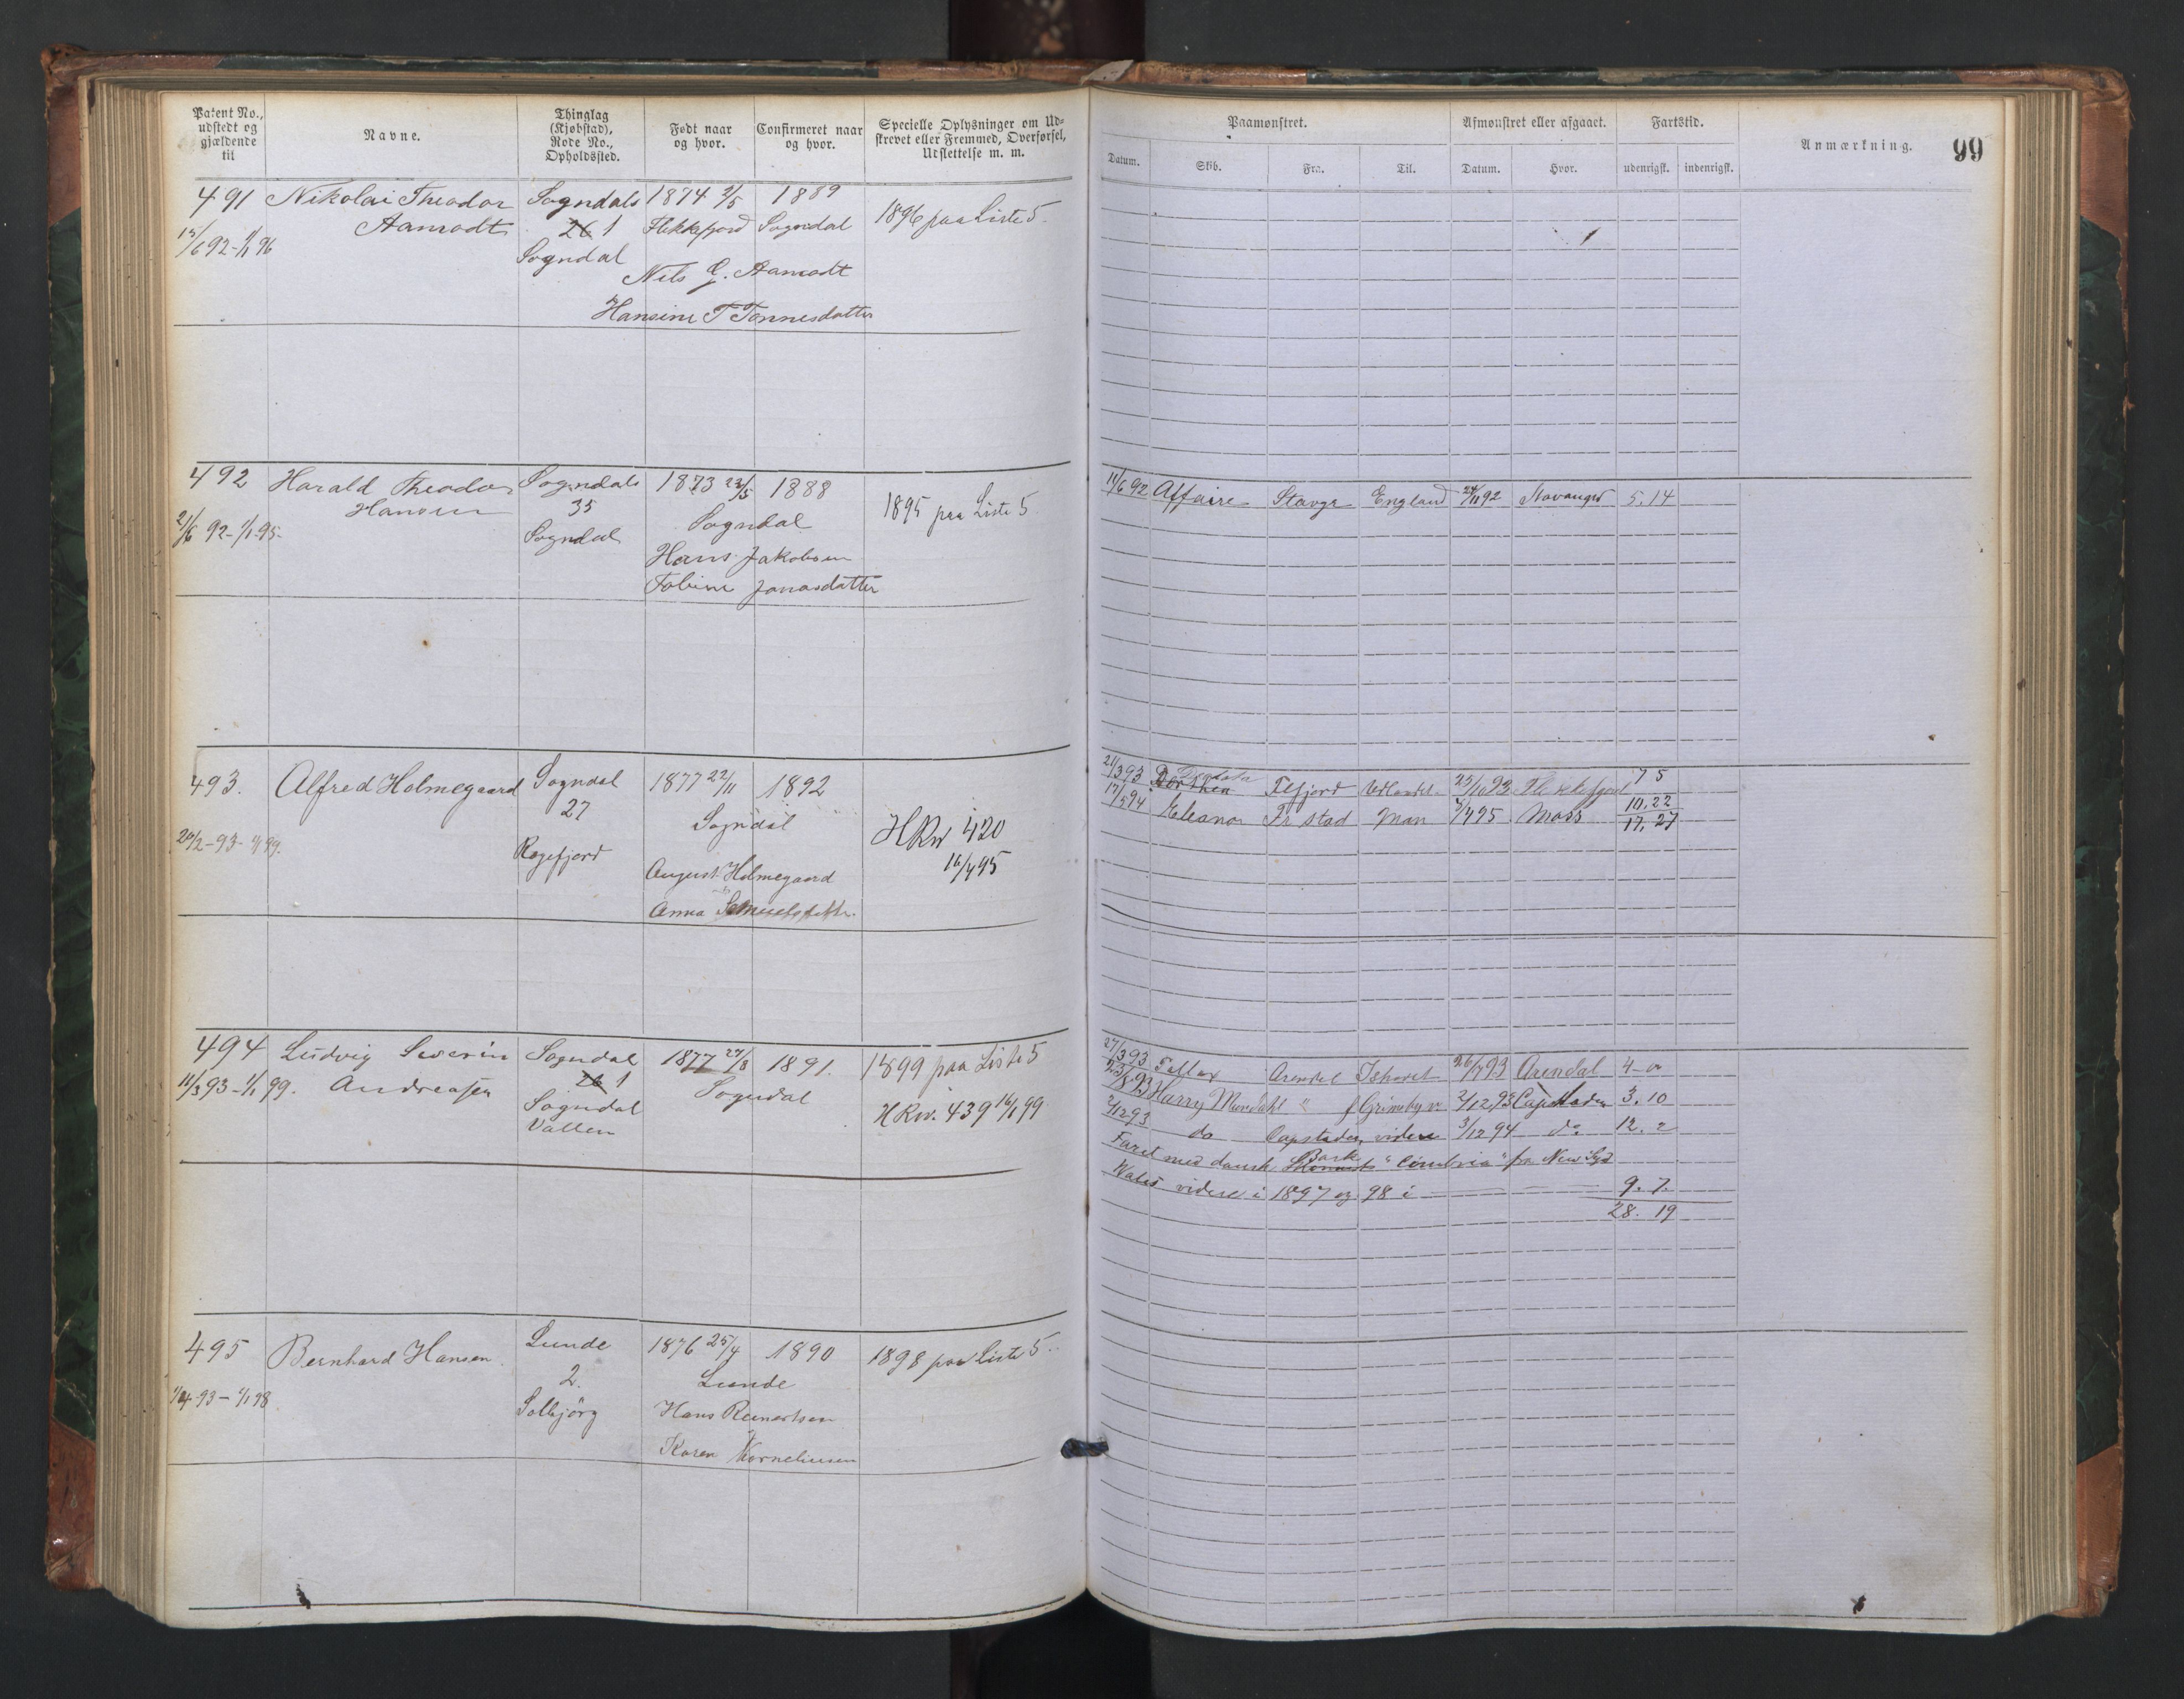 Patent No., udstedt og gjældende til
Navne.
Thinglag (Kjøbstad), Rode No., Opholdssted.
Født naar og hvor.
Confirmeret naar og hvor.
Specielle Oplysninger om Udskrevet eller Fremmed, Overførsel, Udslettelse m. m.
Paamønstret.
Afmønstret eller afgaaet.
Fartstid.
Anmærkning.
99
Datum.
Skib.
Fra.
Til.
Datum.
Hvor.
udenrigsk.
indenrigsk.
491 Nikolai Theodor Sogndals 1874 2/5 1889
Aamodt 26 1 Flekkefjord Sogndal 1896 paa Liste 5.
15/6 92 - 1/1 96 Sogndal
Nils G. Aamodt
Hansine T Tønnesdatter
492 Harald Theodor Sogndals 1873 22/5 1888
Hansen 35 Sogndal 1895 paa Liste 5
21/6 92 - 1/1 95 Sogndal
Hans Jakobsen
Tobine Jonasdatter
11/6 92 Affaire Stavgr England 24/11 92 Stavanger 5.14
493. Alfred Holmegaard Sogndal 1877 22/11 1892
27 Sogndal
HRw 420
20/2 - 93 - 1/1 99. Regefjord 16/4 95
August Holmegaard
Anna Samuelsdttr.
21/3 93 Flfjord Udlandet 25/10 93 Flekkefjord 7 5
17/5 94 Eleanor Fr stad Man 4/4 95 Moss 10.22
17.27
494 Ludvig Severin Sogndal 1877 27/8 1891. 1899 paa Liste 5
11/3 93 - 1/1 99. Andreassen 26 1 Sogndal
Sogndal HRw. 439 16/1 99
Vatten
27/3 93 Arendal Ishavet 26/7 93 Arendal 4 - 0
23/8 93 Harry Mundahl " f Grimsby v 2/12 93 Capstaden 3.10
2/12 93 do Capstaden videre 3/12 94 do 12.2
Faret med dansk Bark "Cimbria" fra New Syd
Wales videre i 1897 og 98 i 9.7.
28. 19
495 Bernhard Hansen Lunde 1876 25/4 1890 1898 paa Liste 5.
2. Lunde
1/4 93 - 1/1 98 Solbjörg Hans Reinertsen
Karen Korneliusen